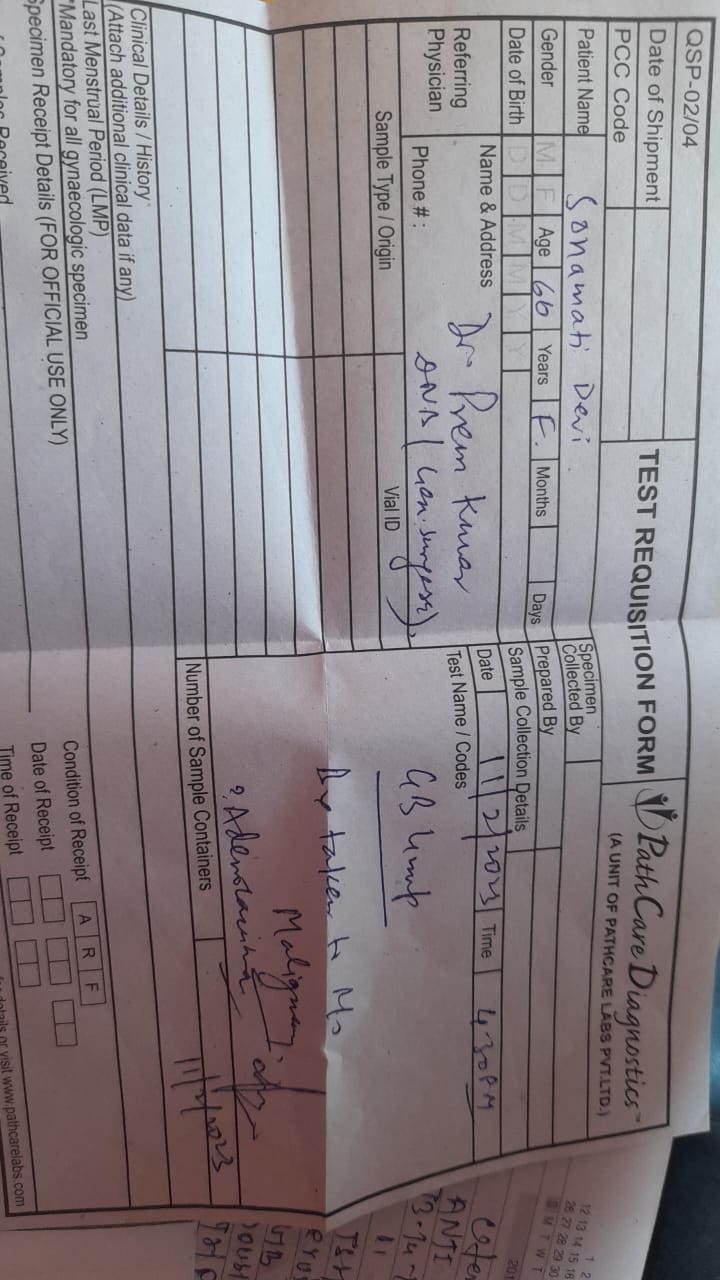 QSP-02/04
TEST REQUISITION FORM
PathCare Diagnostics™
(A UNIT OF PATHCARE LABS PVT.LTD.)
Date of Shipment
PCC Code
Patient Name Sonamati Devi
Specimen Collected By
Gender M F Age 66 Years F. Months Days
Prepared By
Date of Birth D D M M Y Y
Sample Collection Details
Referring Physician
Name & Address Dr. Prem Kumar
Date 11/2/2023 Time 4:30PM
DNB (Gen. Surgery).
Phone # :
Test Name / Codes
GB lump
Sample Type / Origin Vial ID
Malignancy
? Adenocarcinoma
11/2/2023
Number of Sample Containers
Clinical Details / History
(Attach additional clinical data if any)
Last Menstrual Period (LMP)
*Mandatory for all gynaecologic specimen
Specimen Receipt Details (FOR OFFICIAL USE ONLY)
Condition of Receipt A R F
Date of Receipt
Time of Receipt
Received
details or visit www.pathcarelabs.com
1 2
12 13 14 15 16
26 27 28 29 30
S M T W T
20